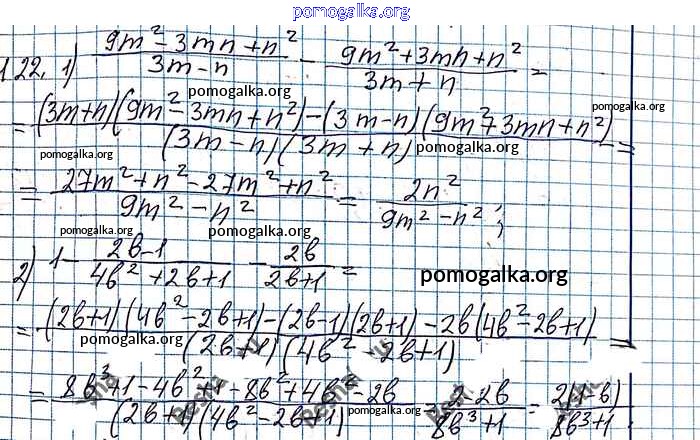 pomogalka.org
1.22. 1) (9m² - 3mn + n²)/(3m - n) - (9m² + 3mn + n²)/(3m + n) =
pomogalka.org pomogalka.org
= ((3m+n)(9m² - 3mn + n²) - (3m-n)(9m² + 3mn + n²))/((3m - n)(3m + n)) =
pomogalka.org pomogalka.org
= (27m² + n² - 27m² + n²)/(9m² - n²) = 2n²/(9m² - n²);
pomogalka.org pomogalka.org
2) 1 - (2b-1)/(4b² + 2b + 1) - 2b/(2b+1) =
pomogalka.org
= ((2b+1)(4b² - 2b + 1) - (2b-1)(2b+1) - 2b(4b² - 2b + 1))/((2b+1)(4b² - 2b + 1)) =
pomogalka.org
= (8b³ + 1 - 4b² + 1 - 8b² + 4b² - 2b)/((2b+1)(4b² - 2b + 1)) = (2-2b)/(8b³+1) = 2(1-b)/(8b³+1).
pomogalka.org